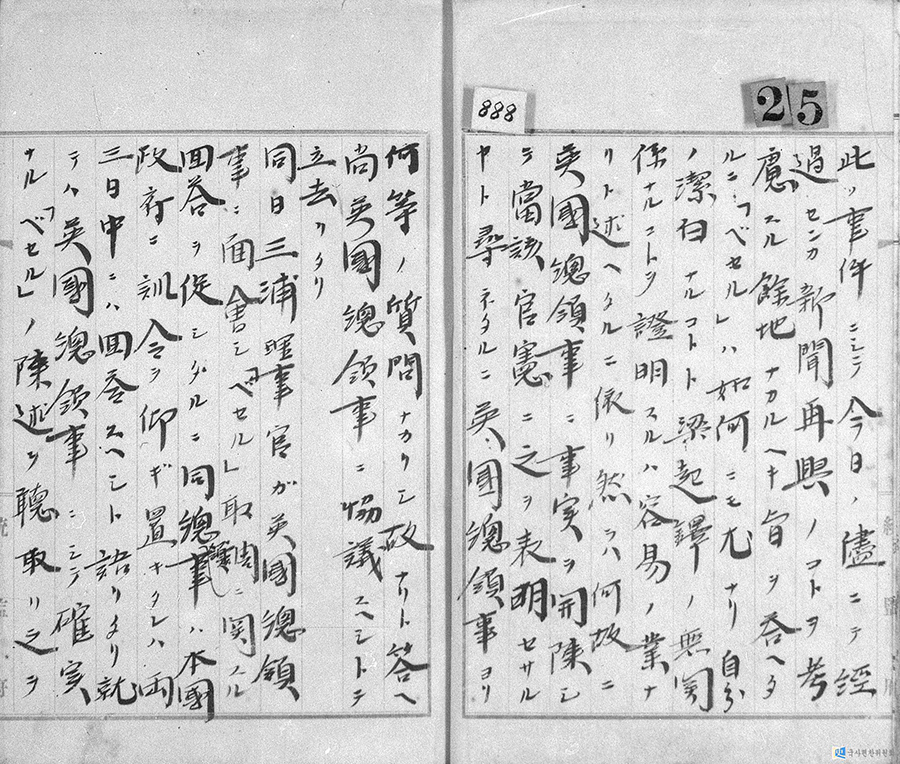 888
25
此ノ事件ニシテ今日ノ儘ニテ経
過センカ新聞再興ノコトヲ考
慮スル餘地ナカルヘキ旨ヲ答ヘタ
ルニ「ベセル」ハ如何ニモ尤ナリ自分
ノ潔白ナルコト梁起鐸ノ無関
係ナルコトヲ證明スルハ容易ノ業ナ
リト述ヘタルニ依リ然ラハ何故ニ
英國總領事ニ事実ヲ開陳シ
テ當該官憲ニ之ヲ表明セサル
ヤト尋ネタルニ英國總領事ヨリ
何等ノ質問ナカリシ故ナリト答ヘ
尚英國總領事ニ協議スヘシトテ
立去リタリ
同日三浦理事官ガ英國總領
事ニ面會シ「ベセル」取調ニ関スル
回答ヲ促シタルニ同總領事ハ本國
政府ニ訓令ヲ仰ギ置キタレハ両
三日中ニハ回答スヘシト語リタリ就
テハ英國總領事ニシテ確実
ナル「ベセル」ノ陳述ヲ聴取リ之ヲ
統監府
국사편찬위원회